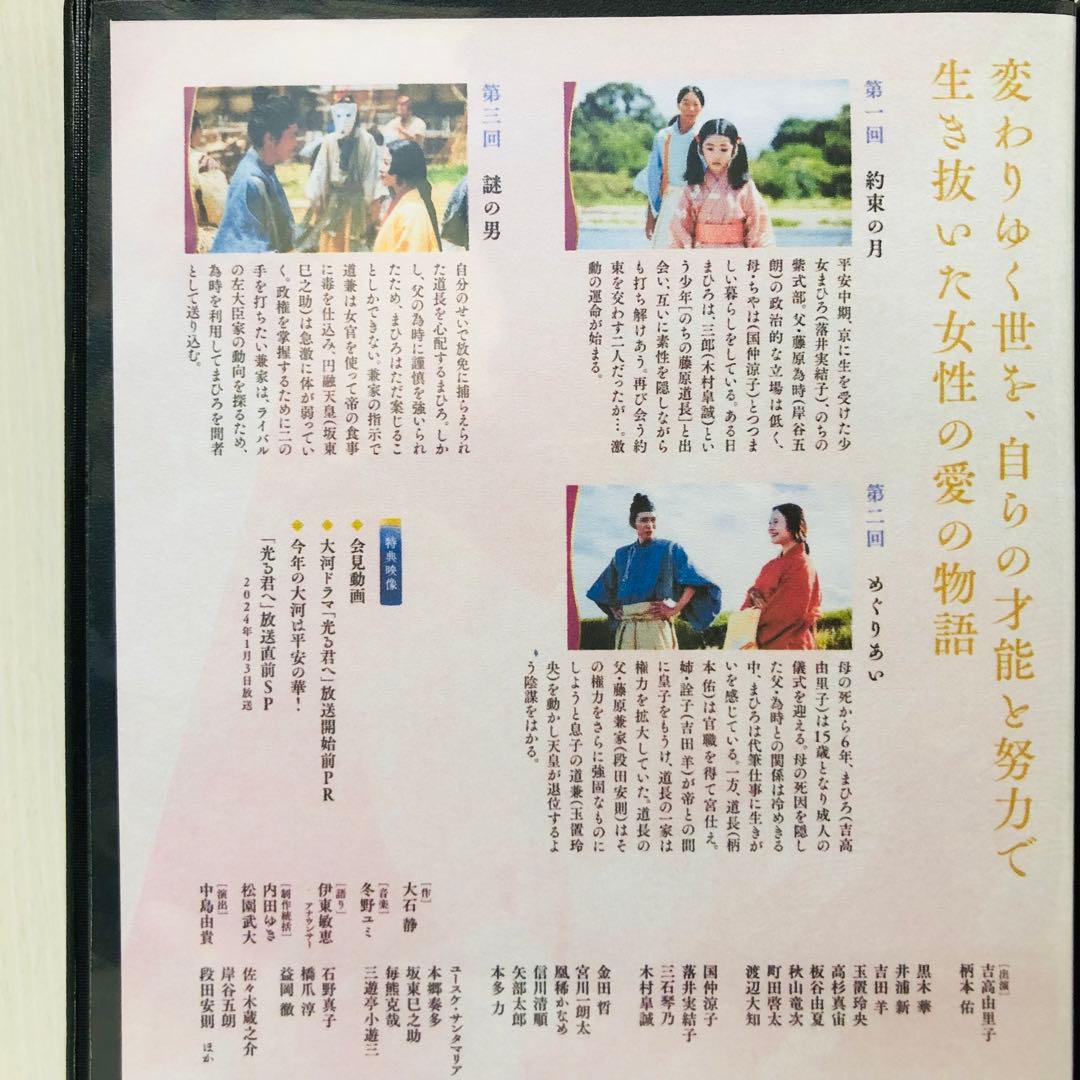 変わりゆく世を、自らの才能と努力で
生き抜いた女性の愛の物語
第一回 約束の月
平安中期、京に生を受けた少
女まひろ（落井実結子）、のちの
紫式部。父・藤原為時（岸谷五
朗）の政治的な立場は低く、
母・ちやは（国仲涼子）とつつま
しい暮らしをしている。ある日
まひろは、三郎（木村皐誠）とい
う少年［のちの藤原道長］と出
会い、互いに素性を隠しながら
も打ち解けあう。再び会う約
束を交わす二人だったが…。激
動の運命が始まる。
第二回 めぐりあい
母の死から6年、まひろ（吉高
由里子）は15歳となり成人の
儀式を迎える。母の死因を隠し
た父・為時との関係は冷めきる
中、まひろは代筆仕事に生きが
いを感じている。一方、道長（柄
本佑）は官職を得て宮仕え。
姉・詮子（吉田羊）が帝との間
に皇子をもうけ、道長の一家は
権力を拡大していた。道長の
父・藤原兼家（段田安則）はそ
の権力をさらに強固なものに
しようと息子の道兼（玉置玲
央）を動かし天皇が退位するよ
う陰謀をはかる。
第三回 謎の男
自分のせいで放免に捕らえられ
た道長を心配するまひろ。しか
し、父の為時に謹慎を強いられ
たため、まひろはただ案じるこ
としかできない。兼家の指示で
道兼は女官を使って帝の食事
に毒を仕込み、円融天皇（坂東
巳之助）は急激に体が弱ってい
く。政権を掌握するために二の
手を打ちたい兼家は、ライバル
の左大臣家の動向を探るため、
為時を利用してまひろを間者
として送り込む。
特典映像
会見動画
大河ドラマ「光る君へ」放送開始前PR
今年の大河は平安の華！
「光る君へ」放送直前SP
2024年1月3日放送
［作］
大石 静
［音楽］
冬野ユミ
［語り］
伊東敏恵
アナウンサー
［制作統括］
内田ゆき
松園武大
［演出］
中島由貴
［出演］
吉高由里子
柄本 佑
黒木 華
井浦 新
吉田 羊
玉置玲央
高杉真宙
板谷由夏
秋山竜次
町田啓太
渡辺大知
国仲涼子
落井実結子
三石琴乃
木村皐誠
金田 哲
宮川一朗太
凰稀かなめ
信川清順
矢部太郎
本多 力
ユースケ・サンタマリア
本郷奏多
坂東巳之助
毎熊克哉
三遊亭小遊三
石野真子
橋爪 淳
益岡 徹
佐々木蔵之介
岸谷五朗
段田安則 ほか